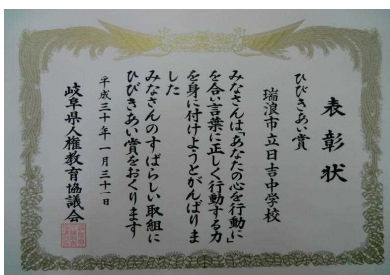 表彰状
ひびきあい賞
瑞浪市立日吉中学校
みなさんは、「あなたの心を行動に」
を合い言葉に正しく行動する力
を身に付けようとがんばりま
した
みなさんのすばらしい取組に
ひびきあい賞をおくります
平成三十年一月三十一日
岐阜県人権教育協議会